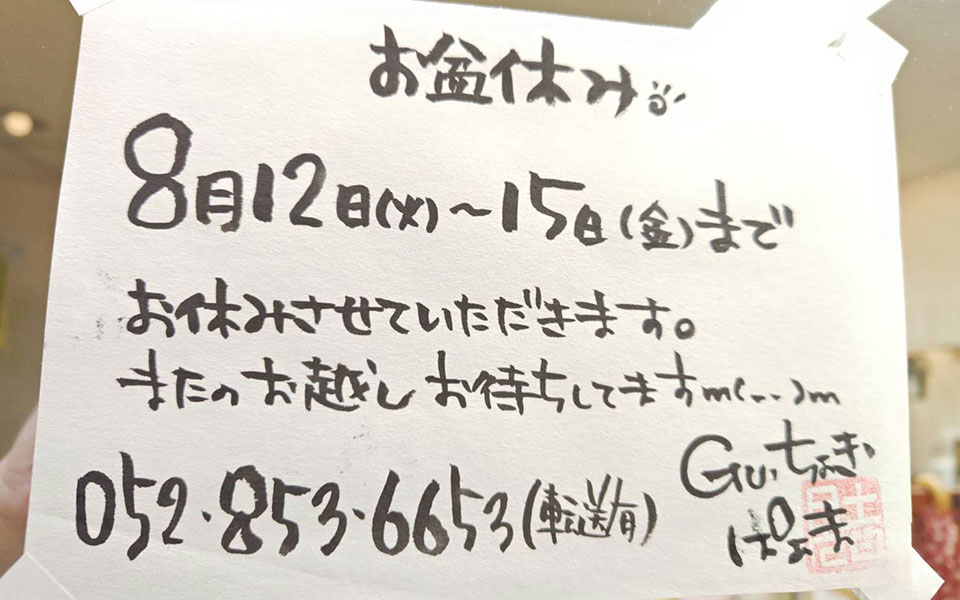 お盆休み
8月12日(火)~15日(金)まで
お休みさせていただきます。
またのお越しお待ちしてますm(..)m
052・853・6653(転送有)
Gu・ちょき・
ぱぁま